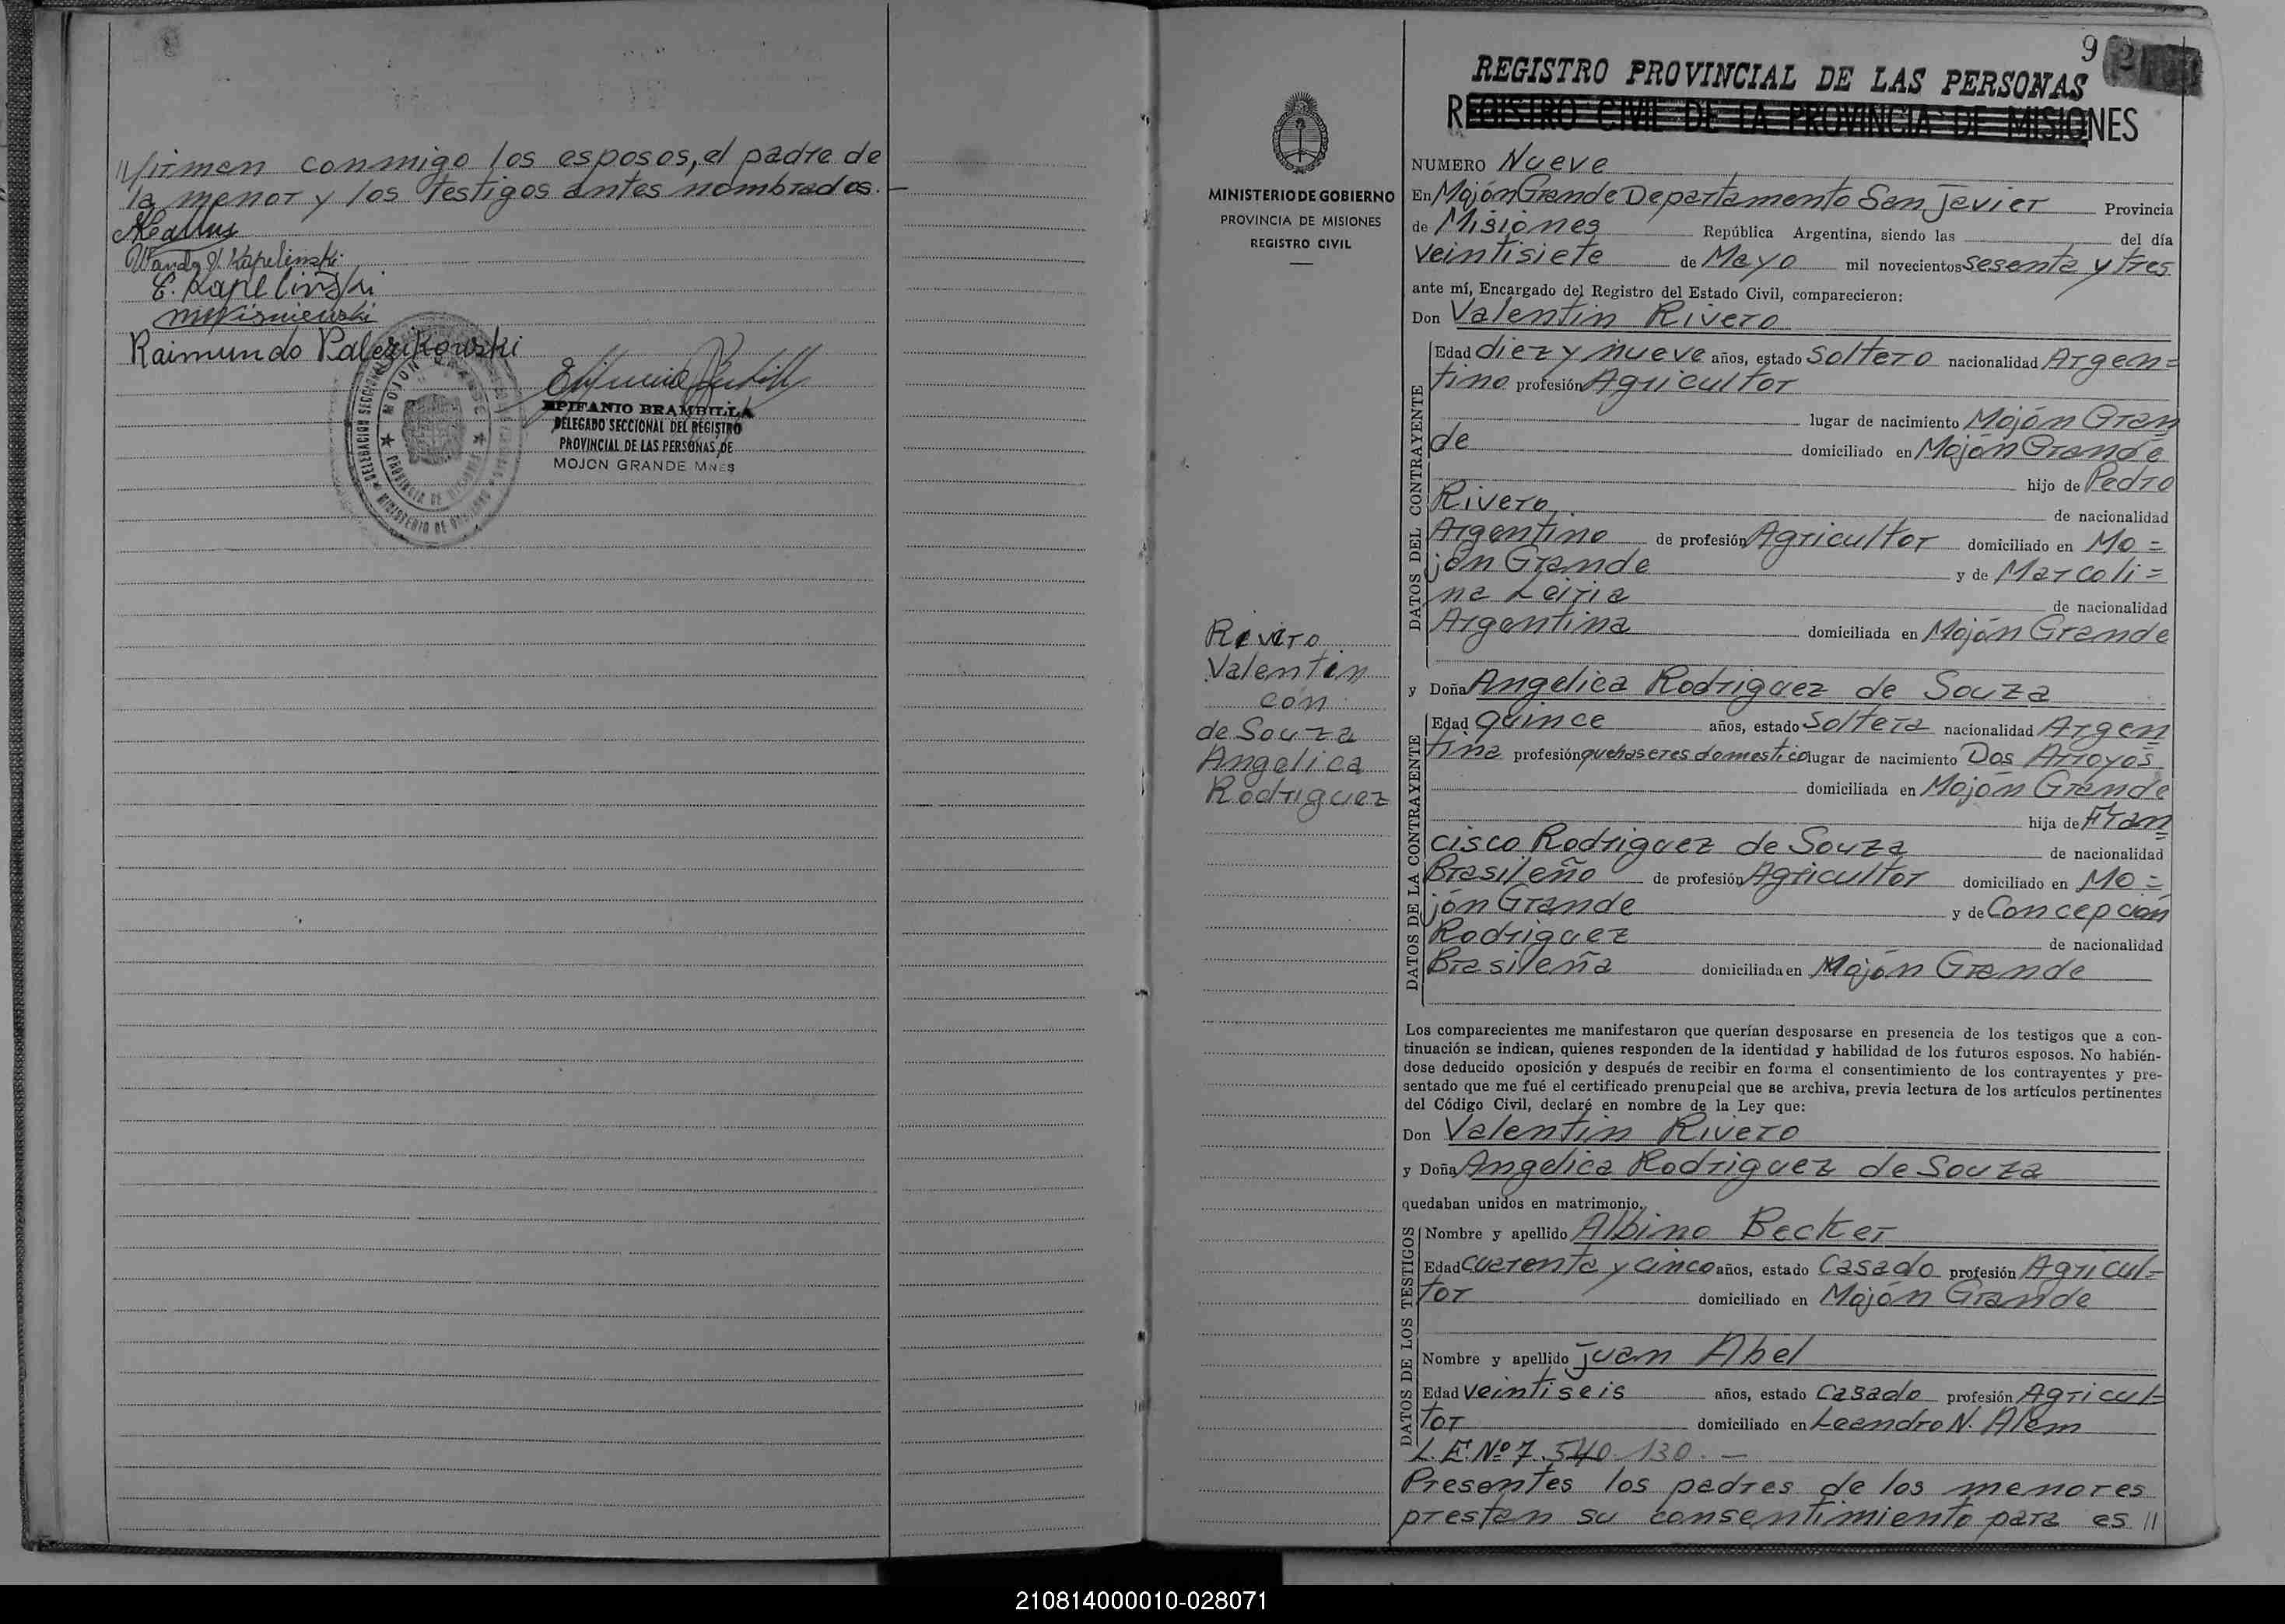 //firmen conmigo los esposos, el padre de
la menor y los testigos antes nombrados.—
Wanda J. Kapelinski
E. Kapelinski
MWisniewski
Raimundo
MOJON GRANDE
PROVINCIA DE MISIONES
MINISTERIO DE GOBIERNO
EPIFANIO BRAMBILLA
DELEGADO SECCIONAL DEL REGISTRO
PROVINCIAL DE LAS PERSONAS DE
MOJON GRANDE MNES
MINISTERIO DE GOBIERNO
PROVINCIA DE MISIONES
REGISTRO CIVIL
Rivero
Valentin
con
de Souza
Angelica
Rodriguez
9
REGISTRO PROVINCIAL DE LAS PERSONAS
REGISTRO CIVIL DE LA PROVINCIA DE MISIONES
NUMERO Nueve
En Mojón Grande Departamento San Javier Provincia
de Misiones República Argentina, siendo las del día
veintisiete de Mayo mil novecientos sesenta y tres
ante mí, Encargado del Registro del Estado Civil, comparecieron:
Don Valentin Rivero
DATOS DEL CONTRAYENTE
Edad diez y nueve años, estado soltero nacionalidad Argen=
tino profesión Agricultor
lugar de nacimiento Mojón Gran
de domiciliado en Mojón Grande
hijo de Pedro
Rivero de nacionalidad
Argentino de profesión Agricultor domiciliado en Mo=
jón Grande y de Marcoli=
na Leiria de nacionalidad
Argentina domiciliada en Mojón Grande
y Doña Angelica Rodriguez de Souza
DATOS DE LA CONTRAYENTE
Edad quince años, estado soltera nacionalidad Argen
tina profesión quehaseres domestico lugar de nacimiento Dos Arroyos
domiciliada en Mojón Grande
hija de Fran
cisco Rodriguez de Souza de nacionalidad
Brasileño de profesión Agricultor domiciliado en Mo=
jón Grande y de Concepción
Rodriguez de nacionalidad
Brasileña domiciliada en Mojón Grande
Los comparecientes me manifestaron que querían desposarse en presencia de los testigos que a con-
tinuación se indican, quienes responden de la identidad y habilidad de los futuros esposos. No habién-
dose deducido oposición y después de recibir en forma el consentimiento de los contrayentes y pre-
sentado que me fué el certificado prenupcial que se archiva, previa lectura de los artículos pertinentes
del Código Civil, declaré en nombre de la Ley que:
Don Valentin Rivero
y Doña Angelica Rodriguez de Souza
quedaban unidos en matrimonio.
DATOS DE LOS TESTIGOS
Nombre y apellido Albino Becker
Edad cuarenta y cinco años, estado Casado profesión Agricul-
tor domiciliado en Mojón Grande
Nombre y apellido Juan Abel
Edad veintiseis años, estado Casado profesión Agricul-
tor domiciliado en Leandro N. Alem
L.E. Nº 7.540.130.—
Presentes los padres de los menores
prestan su consentimiento para es //
210814000010-028071